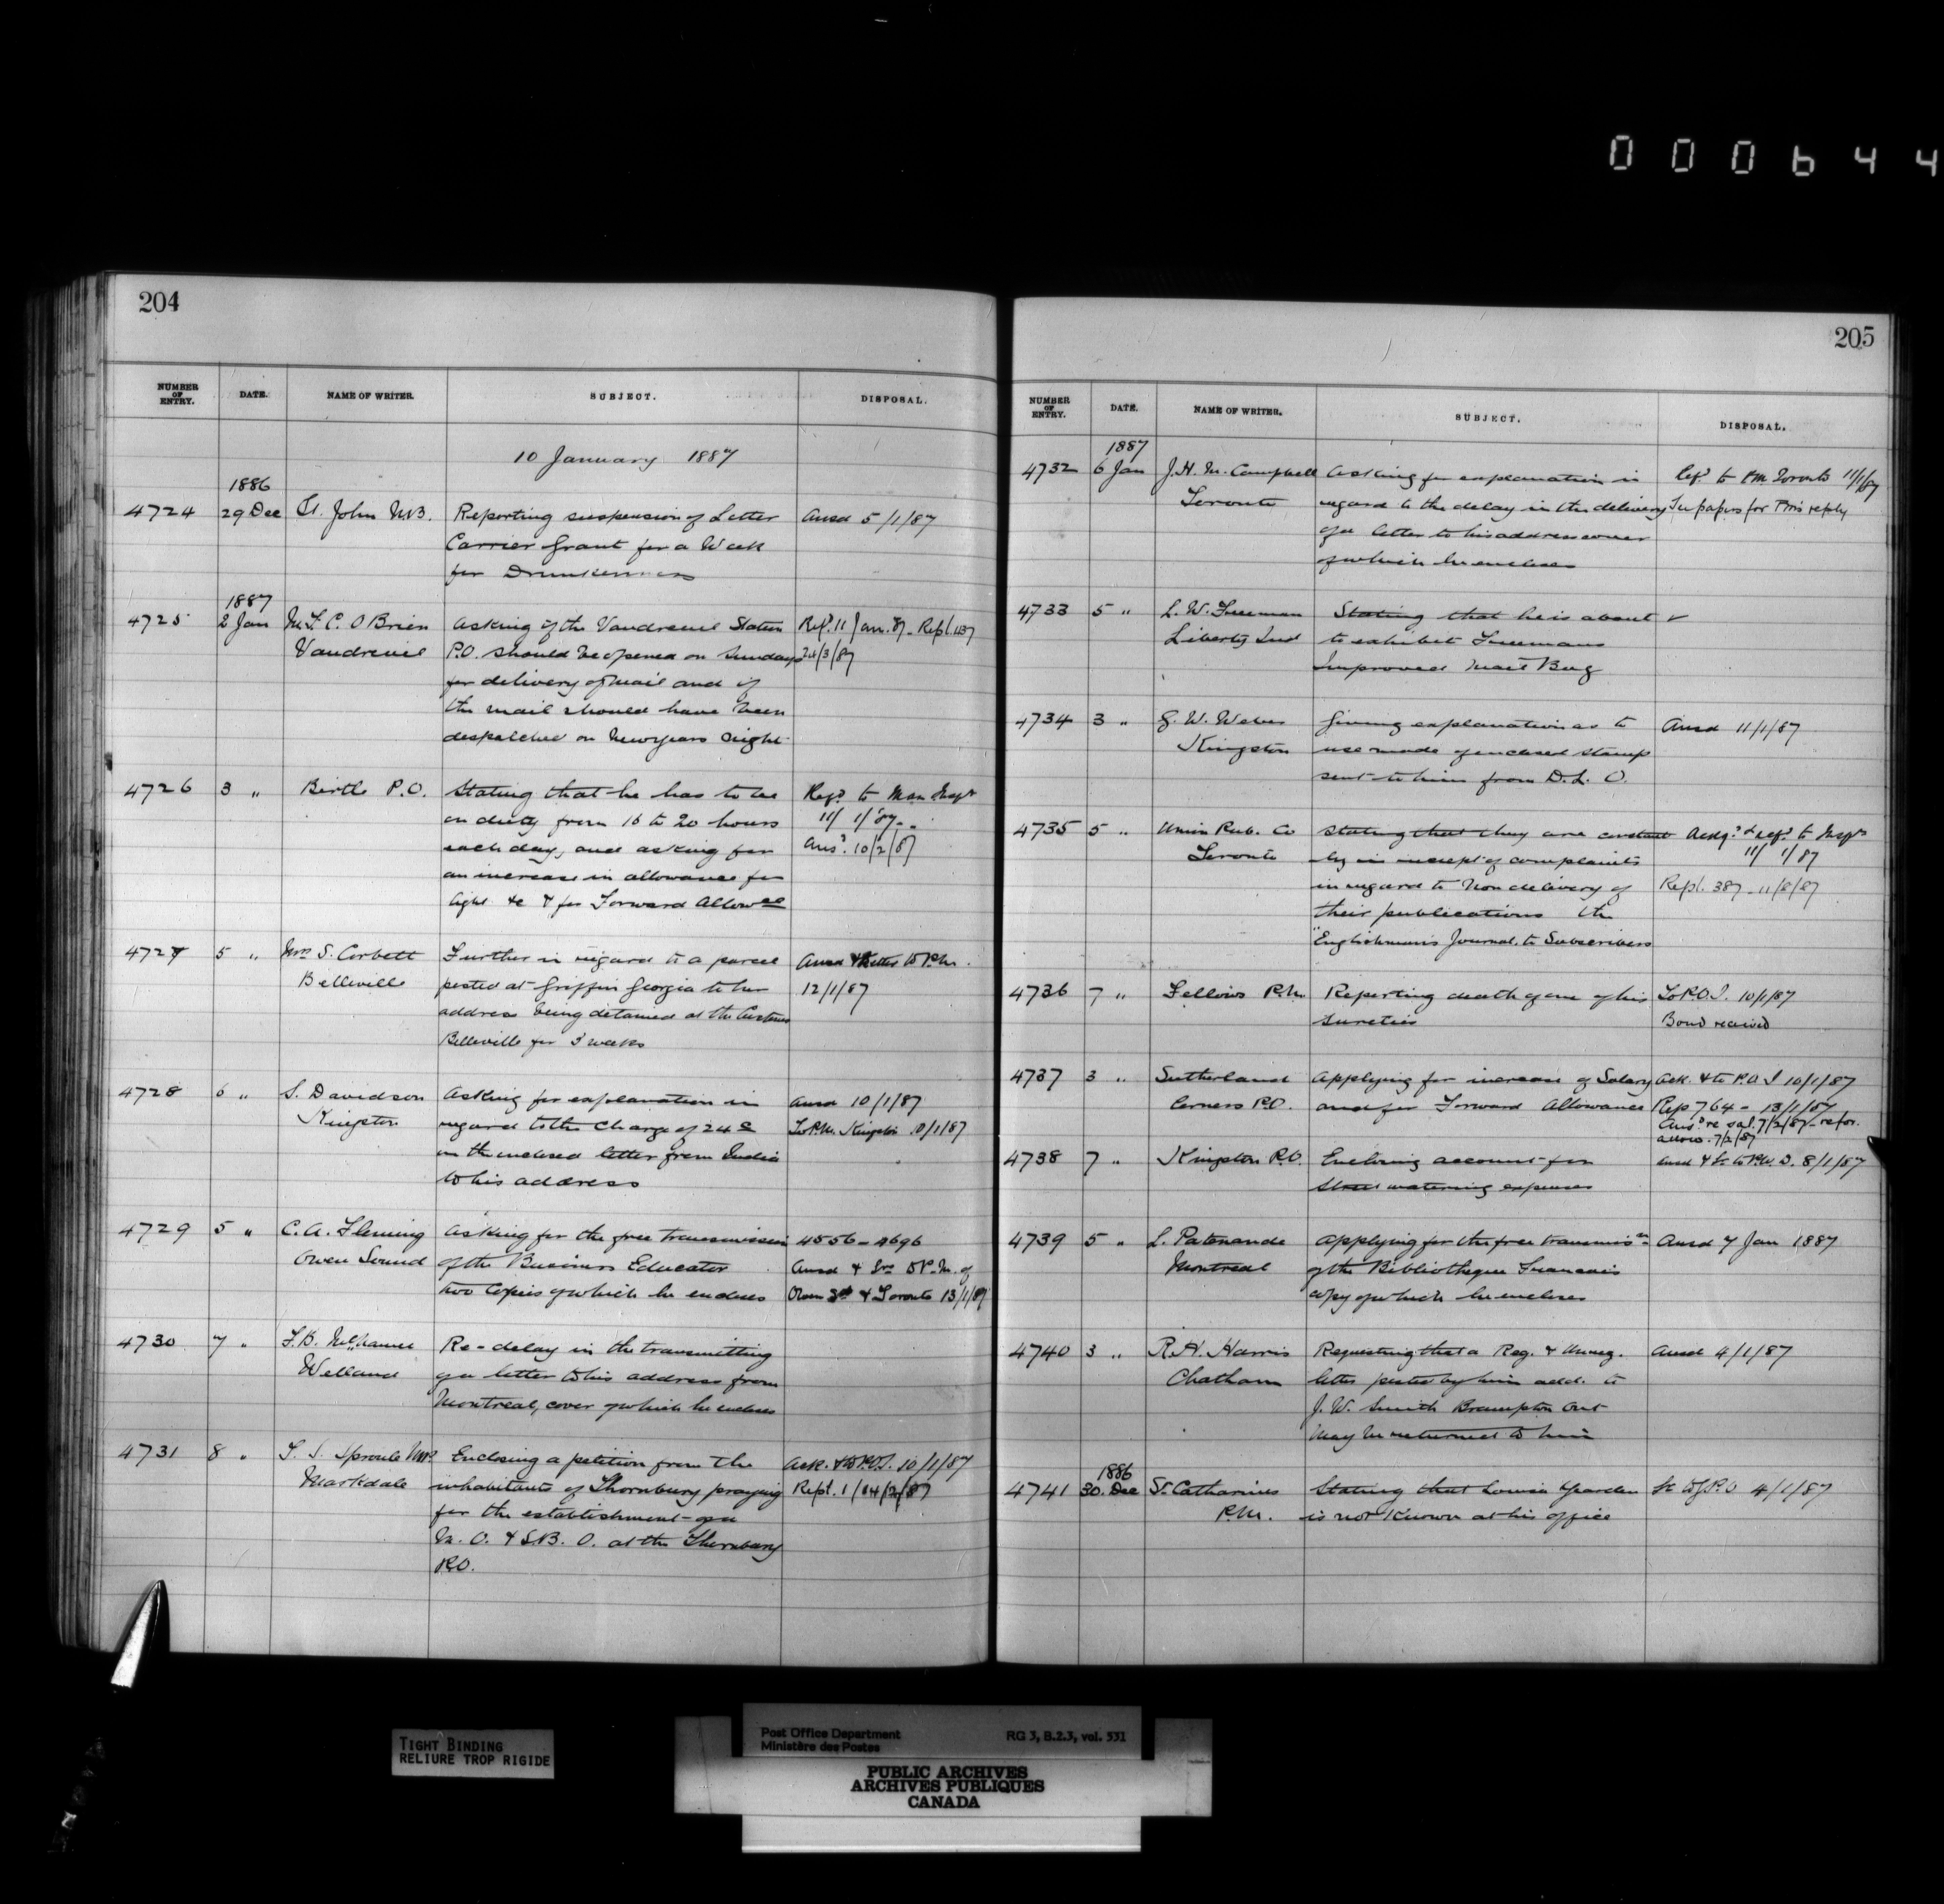 000644
204
NUMBER OF ENTRY. DATE. NAME OF WRITER. SUBJECT. DISPOSAL.
10 January 1887
1886
4724 29 Dec St. John N.B. Reporting suspension of Letter Ansd 5/1/87
Carrier Grant for a Week
for Drunkenness
1887
4725 2 Jan O'Brien Asking if the Vaudreuil Station Refd. 11 Jan. 87 - Repl. 1137
Vaudreuil P.O. should be opened on Sundays 24/3/87
for delivery of mail and if
the mail should have been
despatched on New years Night
4726 3 " Birtle P.O. Stating that he has to be Refd to Man Inspr
on duty from 16 to 20 hours 11/1/87
each day, and asking for Ansd. 10/2/87
an increase in allowance for
light &c & for Forward Allowce
4727 5 " Mrs S. Corbett Further in regard to a parcel Ansd & letter to P.M.
Belleville posted at Griffin Georgia to her 12/1/87
address being detained at the Customs
Belleville for 3 weeks
4728 6 " S. Davidson Asking for explanation in Ansd 10/1/87
Kingston regard to the charge of 24c To P.M. Kingston 10/1/87
on the enclosed letter from India
to his address
4729 5 " C. A. Fleming Asking for the free transmission 4556 - 4696
Owen Sound of the Business Educator Ansd & Lrs to P.M. of
two Copies of which he encloses Owen Sd & Toronto 13/1/87
4730 7 " F.B. Re - delay in the transmitting
Welland of a letter to his address from
Montreal, cover of which he encloses
4731 8 " T. S. Sproule M.P. Enclosing a petition from the Ack. & to P.O.I. 10/1/87
Markdale inhabitants of Thornbury praying Rept. 1/14/2/87
for the establishment of a
M. O. & S.B. O. at the Thornbury
P.O.
205
NUMBER OF ENTRY. DATE. NAME OF WRITER. SUBJECT. DISPOSAL.
1887
4732 6 Jan J. H. M. Campbell Asking for explanation in Refd to P.M. Toronto 11/1/87
Toronto regard to the delay in the delivery See papers for P.M's reply
of a letter to his address cover
of which he encloses
4733 5 " L. W. Freeman Stating that he is about ✓
Liberty Ind to exhibit Freemans
Improved Mail Bag
4734 3 " G. W. Weber Giving explanation as to Ansd 11/1/87
Kingston use made of enclosed stamp
sent to him from D. L. O.
4735 5 " Union Pub. Co Stating that they are constant Ackd. & refd. to Inspr
Toronto ly in receipt of complaints 11/1/87
in regard to Non delivery of Repl. 387 - 11/8/87
their publications the
"Englishman's Journal. to Subscribers
4736 7 " Fellows P.M. Reporting death of one of his To P.O.I. 10/1/87
sureties Bond received
4737 3 " Sutherland Applying for increase of Salary Ack. & to P.O.I 10/1/87
Corners P.O. and for Forward Allowance Rep 764 - 13/1/87
Ansd re sal. 7/2/87 - re for.
allow. 7/2/87
4738 7 " Kingston P.O. Enclosing account for Ansd & Lr to P.W.D. 8/1/87
Street watering expenses
4739 5 " L. Patenaude Applying for the free transmissn Ansd 7 Jan 1887
Montreal of the Bibliotheque Francais
copy of which he encloses
4740 3 " R. H. Harris Requesting that a Reg. & Unreg. Ansd 4/1/87
Chatham letter posted by him add. to
J. W. Smith Brampton Ont
may be returned to him
1886
4741 30. Dec St. Catharines Stating that Louisa Yarden 4/1/87
P.M. is not Known at his office
TIGHT BINDING
RELIURE TROP RIGIDE
Post Office Department RG 3, B.2.3, vol. 531
Ministère des Postes
PUBLIC ARCHIVES
ARCHIVES PUBLIQUES
CANADA